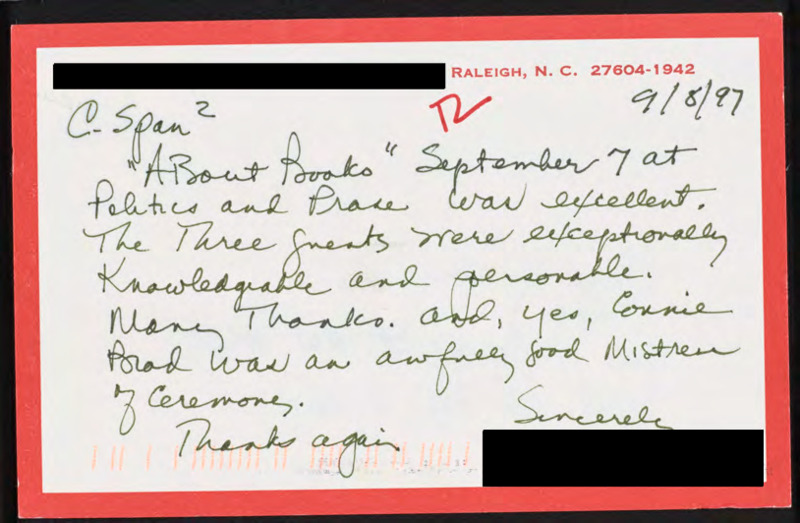 RALEIGH, N. C. 27604-1942
9/8/97
C-Span 2
"ABout Books" September 7 at
Politics and Prose was excellent.
The Three guests were exceptionally
Knowledgeable and personable.
Many Thanks. and, yes, Connie
Brod was an awfully good Mistress
of Ceremony.
Sincerely
Thanks again